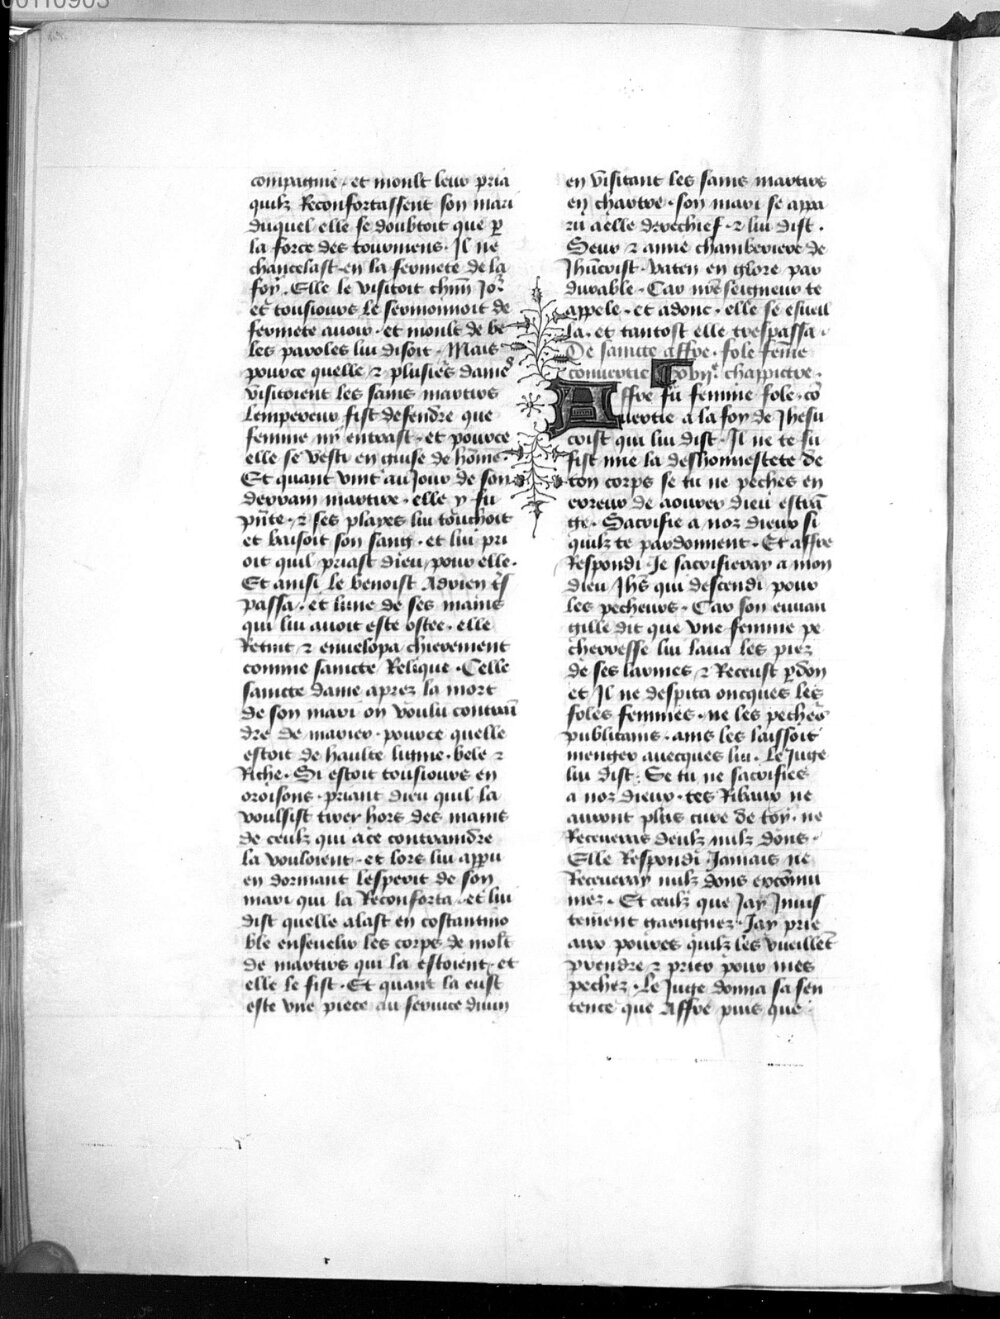 compaignie · et moult leur pria
quilz Reconfortassent son mari
duquel elle se doubtoit que p̱
la force des tourmens · Il ne
chancelast en la fermete de la
foy · Elle le visitoit chūn Jor
et tousiours le sermonnoit de
fermete auoir · et moult de be
les paroles lui disoit · Mais
pource quelle ⁊ plusieʳs dameˢ
visitoient les sains martirs
Lempereur fist defendre que
femme ny entrast · et pource
elle se vesti en guise de hōme ·
Et quant vint au Jour de son
derrain martire · elle y fu
pn̄te · ⁊ ses playes lui touchoit
et baisoit son sang · et lui pri
oit quil priast dieu pour elle ·
Et ainsi le benoist Adrien t̄s
passa · et lune de ses mains
qui lui auoit este ostee · elle
Retint ⁊ enuelopa chierement
comme saincte Relique · Celle
saincte dame aprez la mort
de son mari on voulu contrai
dre de marier · pource quelle
estoit de haulte lignie · bele ⁊
Riche · Si estoit tousiours en
oroisons · priant dieu quil la
voulsist tirer hors des mains
de ceulz qui a ce contraindre
la vouloient · et lors lui appu
en dormant lesperit de son
mari qui la Reconforta · et lui
dist quelle alast en costantino
ble enseuelir les corps de molt
de martirs qui la estoient · et
elle le fist · Et quant la eust
este vne piece au seruice diuin
en visitant les sains martirs
en chartre · son mari se appa
ru a elle derechief · ⁊ lui dist ·
Seur ⁊ amie chamberiere de
Jhūcrist · vaten en glore par
durable · Car nr̄e seigneur te
appele · et adonc · elle se esueil
la · et tantost elle trespassa ·
De saincte affre · fole fēme
conuertie · Cvijᵉ. chappictre ·
Affre fu femme fole · cō
uertie a la foy de Jhesu
crist qui lui dist · Il ne te su
fist mie la deshonnestete de
ton corps se tu ne peches en
erreur de aourer dieu estrā
ge · Sacrifie a noz dieux si
quilz te pardonnent · Et affre
Respondi Je sacrifieray a mon
dieu Jhūs qui descendi pour
les pecheurs · Car son euuan
gille dit que vne femme pe
cherresse lui laua les piez
de ses larmes ⁊ Receust p̱don
et Il ne despita oncques les
foles femmes · ne les pecheˢ
publicains · ains les laissoit
menger auecques lui · Le Juge
lui dist · Se tu ne sacrifies
a noz dieux · tes Ribaux ne
auront plus cure de toy · ne
Receueras deulz nulz dōns ·
Elle Respondi Jamais ne
Receueray nulz dons excōmu
niez · Et ceulz que Jay Jnius
tement gaengnez · Jay prie
aux poures quilz les vueillēt
prendre ⁊ prier pour mes
pechez · Le Juge donna sa sen
tence que Affre puis que